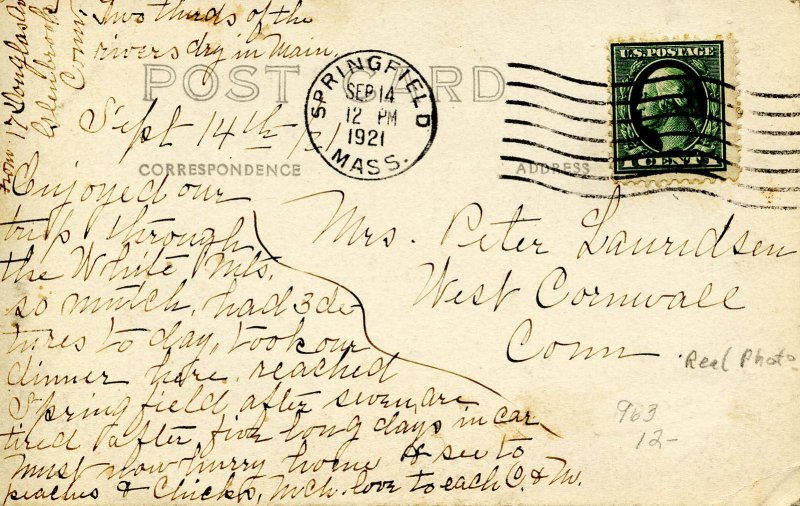 From 17 Douglas Av
Glenbrook
Conn.
Two thirds of the
rivers dry in Main.
POST CARD
SPRINGFIELD
SEP 14
12 PM
1921
MASS.
U.S. POSTAGE
1 CENT 1
Sept 14th /21
CORRESPONDENCE
ADDRESS
Enjoyed our
trip through
the White Mts.
so mutch, had 3 de
tures to day, took our
dinner here, reached
Springfield after seven are
tired after five long days in car
Must now hurry home & see to
peaches & Chicks, Mch. love to each C. & M.
Mrs. Peter Lauridsen
West Cornwall
Conn.
Real Photo
963
12-